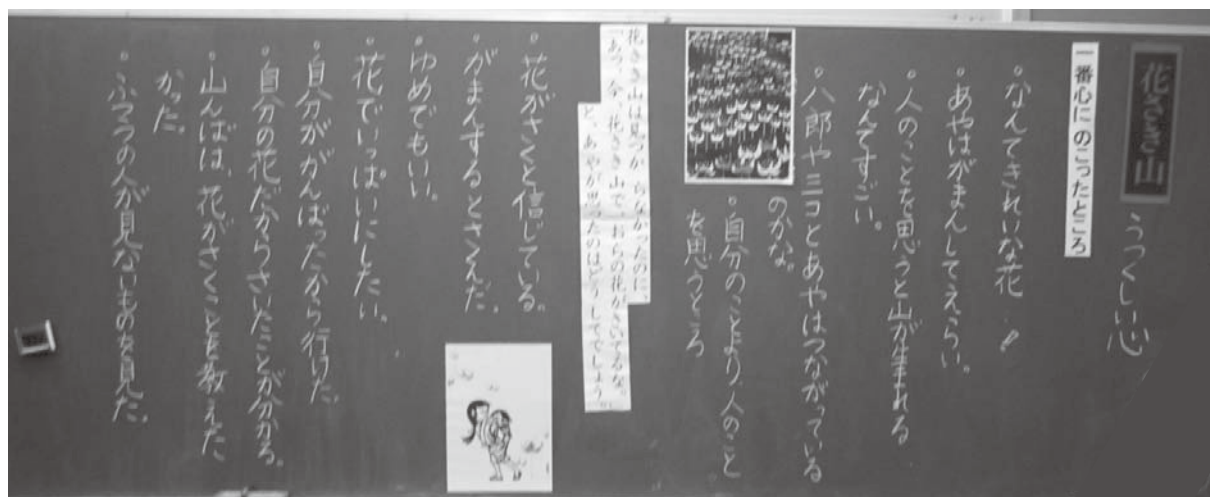 花さき山
うつくしい心
一番心にのこったところ
・なんてきれいな花…!!
・あやはがまんしてえらい。
・人のことを思うと山が生まれる
なんてすごい。
・八郎や三コとあやはつながっている
のかな。
・自分のことより、人のこと
を思うところ
花さき山は見つからなかったのに、
「あっ、今、花さき山で、おらの花がさいてるな。」
と、あやが思ったのはどうしてでしょう。
・花がさくと信じている。
・がまんするとさくんだ。
・ゆめでもいい。
・花でいっぱいにしたい。
・自分ががんばったから行けた。
・自分の花だからさいたことが分かる。
・山んばは、花がさくことを教えた
かった。
・ふつうの人が見ないものを見た。